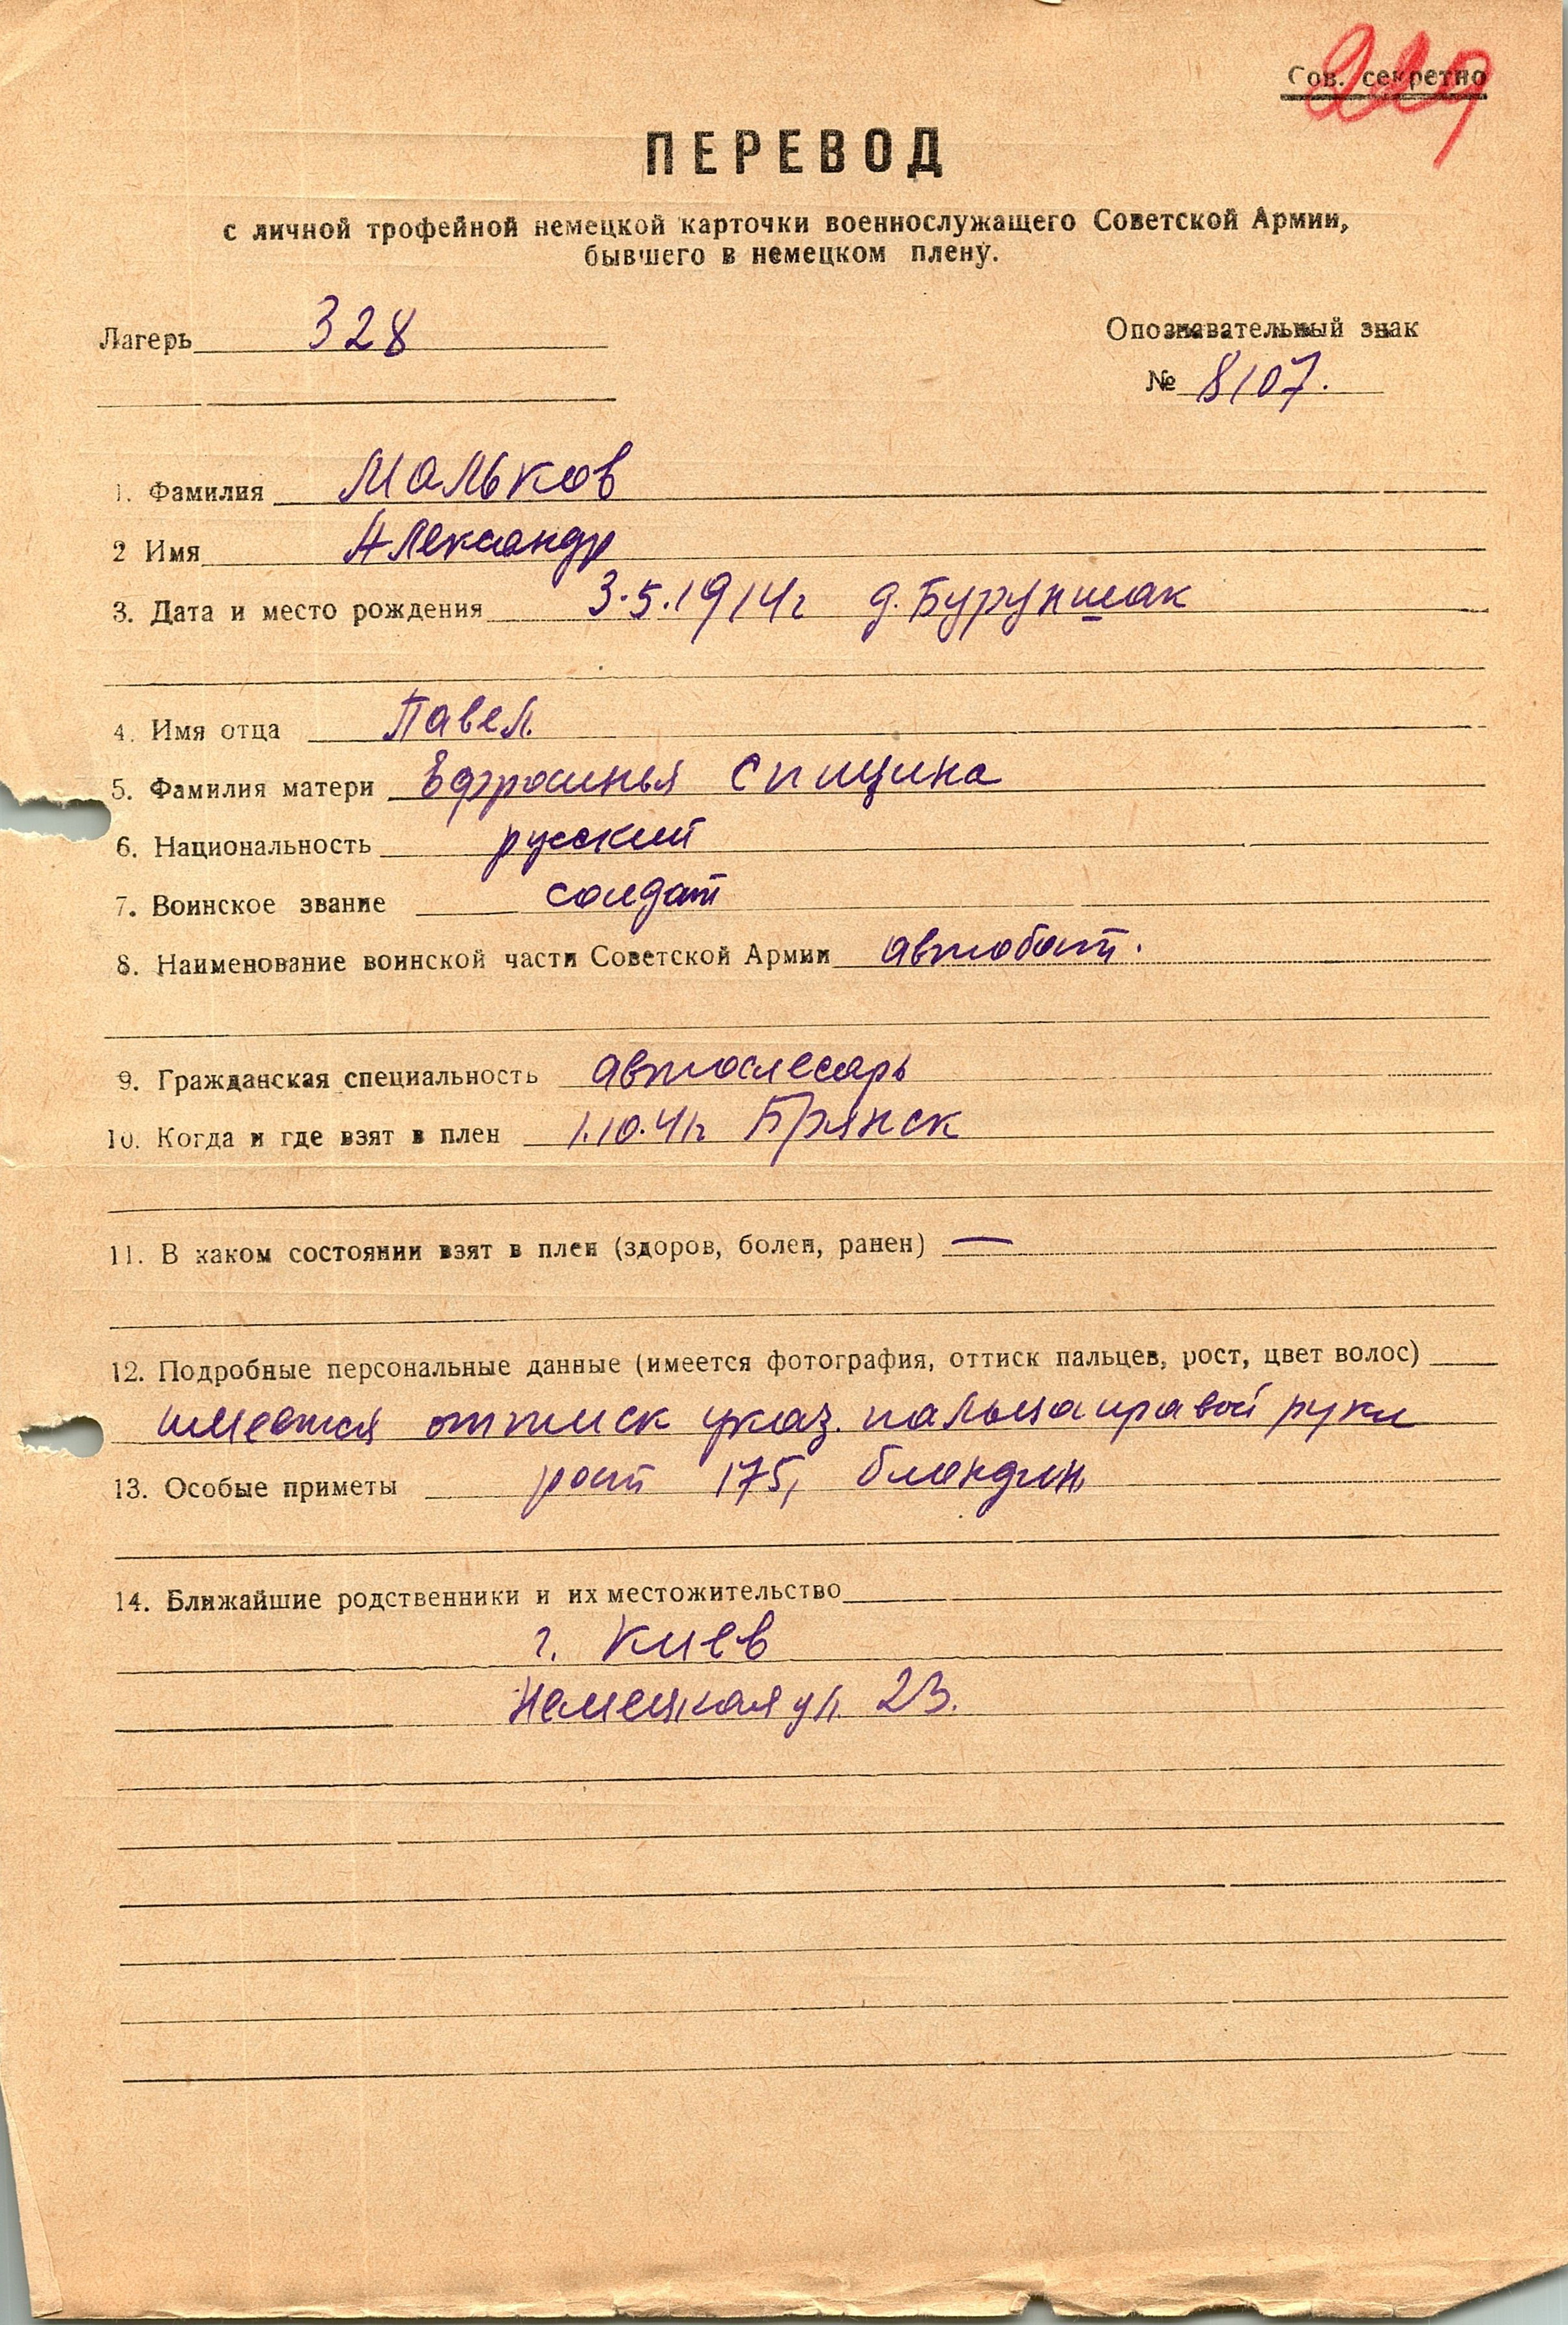 229
Сов. секретно
ПЕРЕВОД
с личной трофейной немецкой карточки военнослужащего Советской Армии,
бывшего в немецком плену.
Лагерь 328
Опознавательный знак
№ 8107.
1. Фамилия Мальков
2 Имя Александр
3. Дата и место рождения 3.5.1914г д. Бурупшак
4. Имя отца Павел.
5. Фамилия матери Ефросинья Спицина
6. Национальность русский
7. Воинское звание солдат
8. Наименование воинской части Советской Армии автобат.
9. Гражданская специальность автослесарь
10. Когда и где взят в плен 1.10.41г Брянск
11. В каком состоянии взят в плен (здоров, болен, ранен) —
12. Подробные персональные данные (имеется фотография, оттиск пальцев, рост, цвет волос)
имеется оттиск указ. пальца правой руки
13. Особые приметы рост 175, блондин
14. Ближайшие родственники и их местожительство
г. Киев
Немецкая ул. 23.